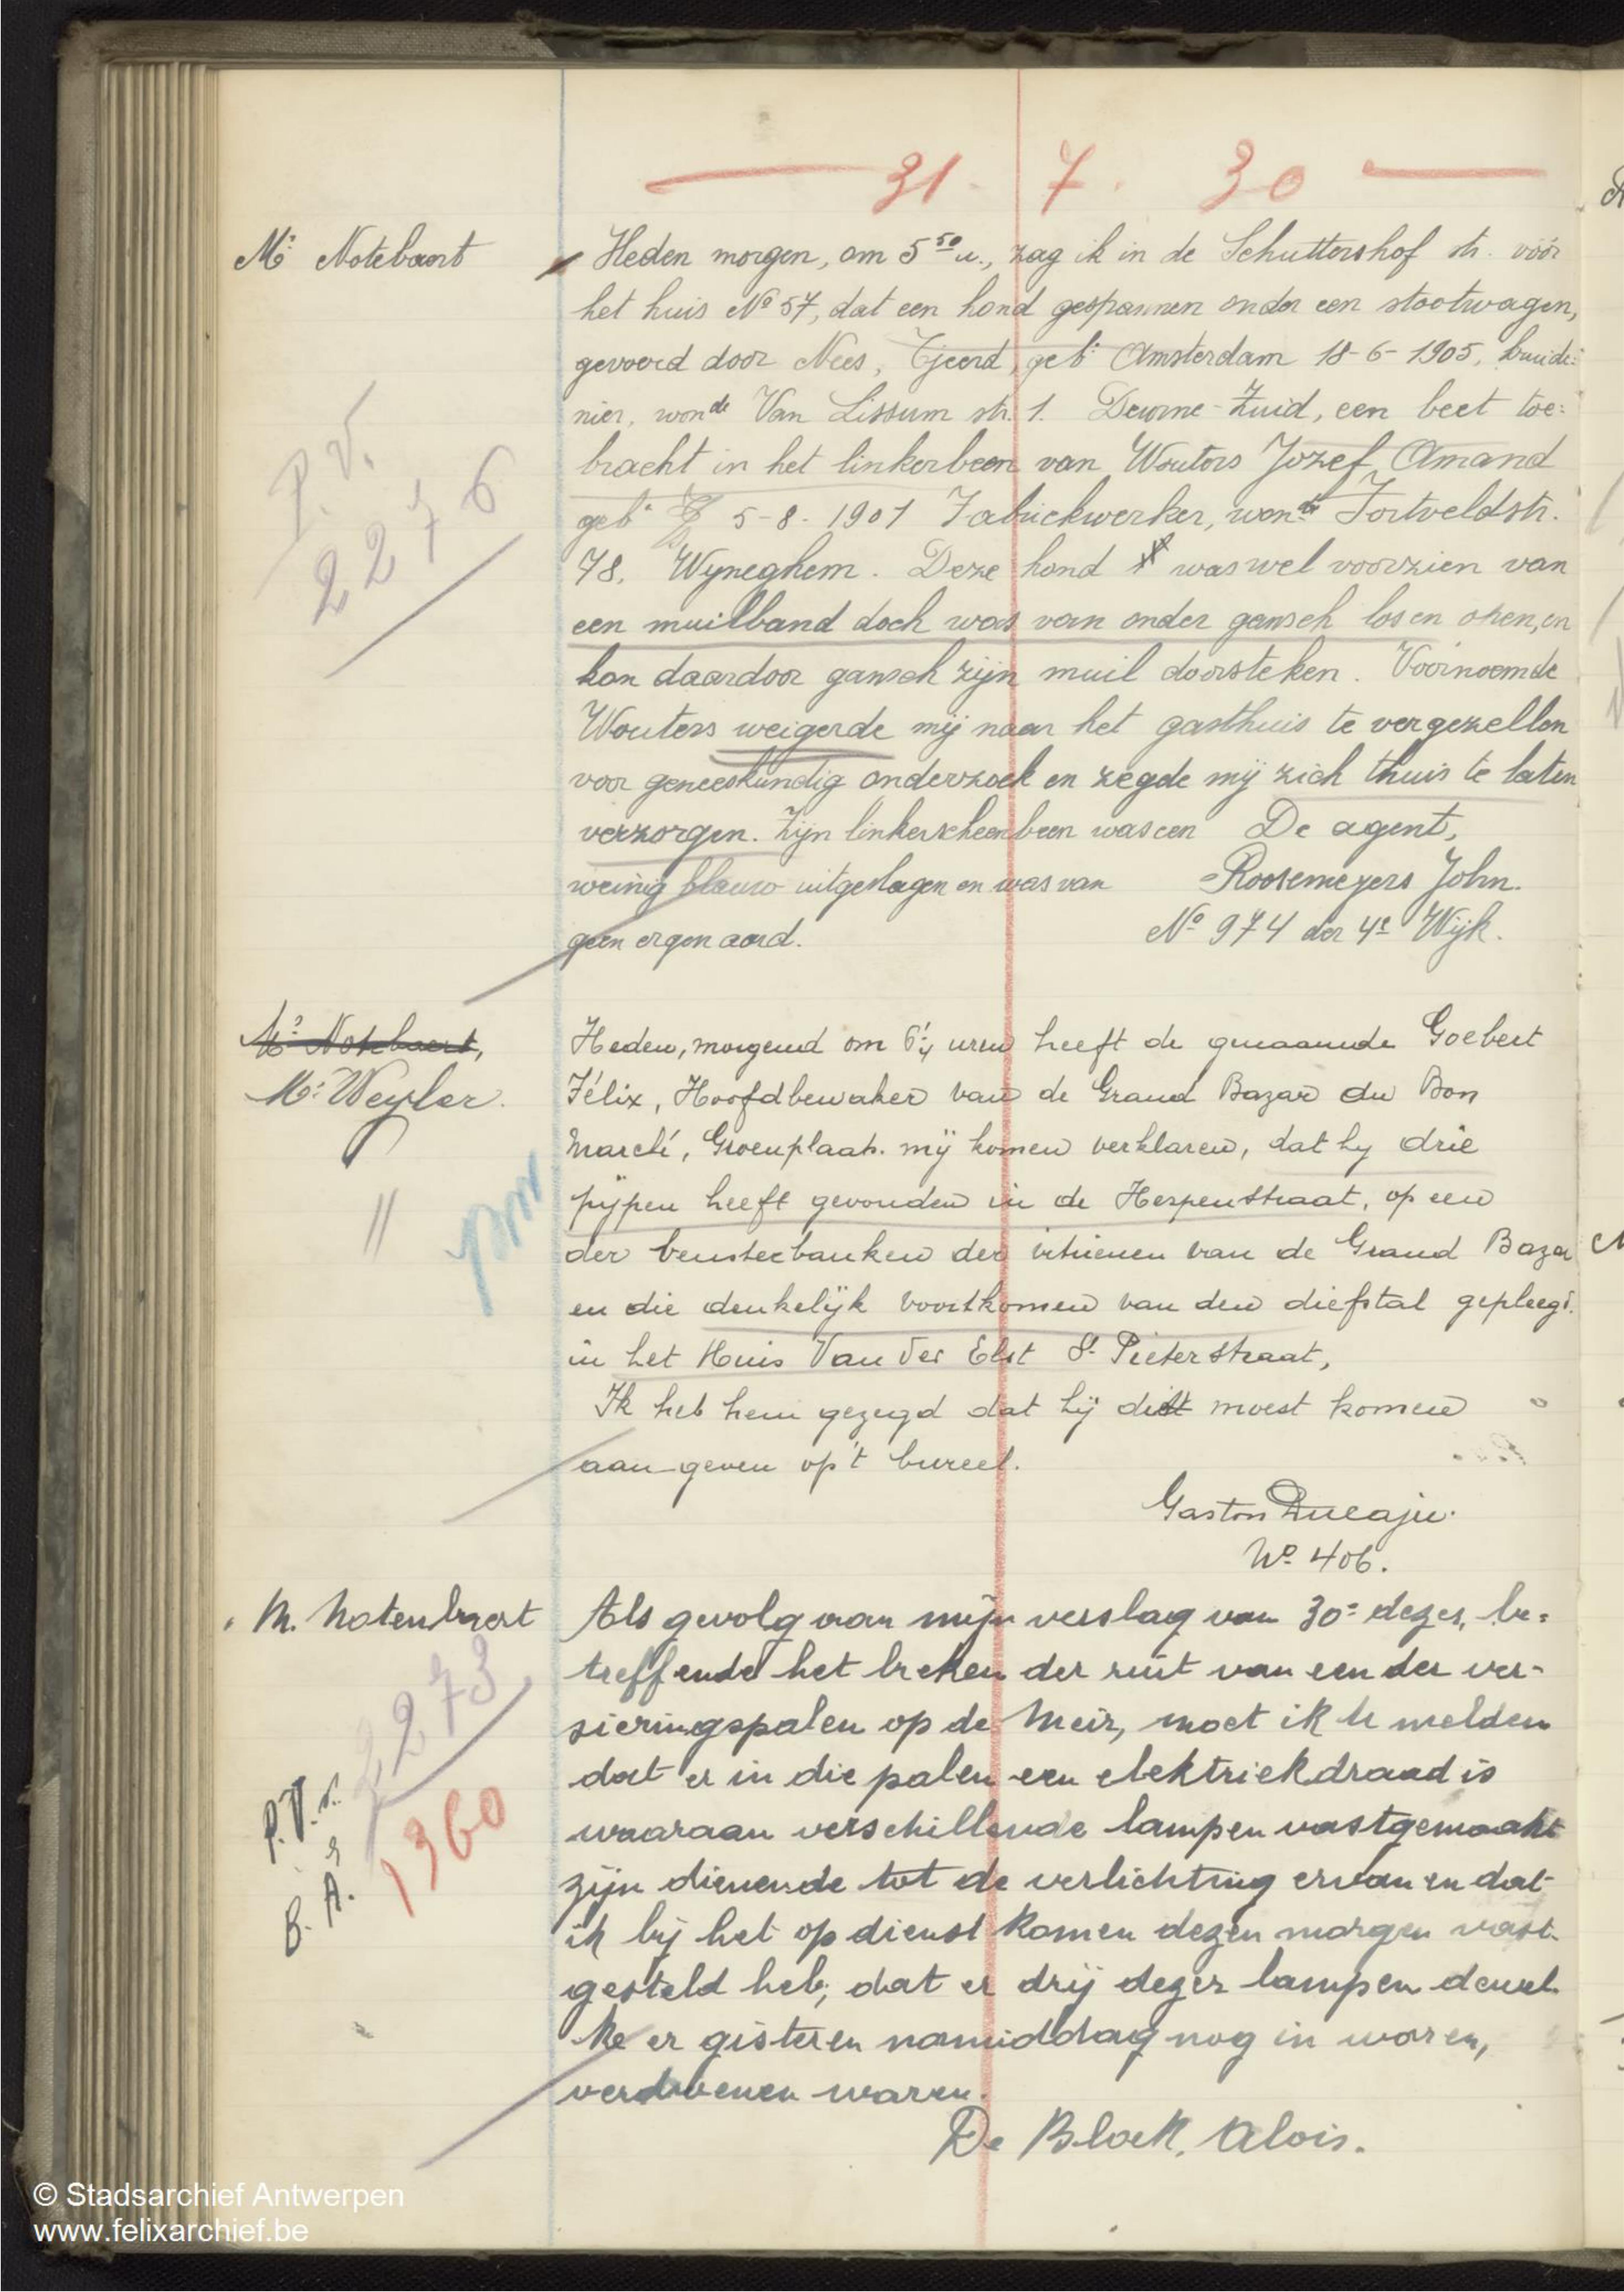 31. 7. 30
Mr Notebaert
Heden morgen, om 5 50 u., zag ik in de Schuttershof str. vóór
het huis No 57, dat een hond gespannen onder een stootwagen,
gevoerd door Nees, Tjeerd, geb. Amsterdam 18-6-1905, kruide:
nier, wonde Van Lissum str. 1. Deurne-Zuid, een beet toe:
bracht in het linkerbeen van Wouters Jozef, Amand
geb. 5-8-1901 Fabriekwerker, wonde Fortveldstr.
78. Wyneghem. Deze hond was wel voorzien van
een muilband doch was van onder gansch los en open, en
kon daardoor gansch zijn muil doorsteken. Voornoemde
Wouters weigerde mij naar het gasthuis te vergezellen
voor geneeskundig onderzoek en zegde mij zich thuis te laten
verzorgen. Zijn linkerscheenbeen was een
weinig blauw uitgeslagen en was van
geen ergen aard.
De agent,
Roosemeyers John.
No 974 der 4e Wijk.
P.V.
2276
Mr Notebaert,
Mr Weyler.
pm
Heden, morgend om 6 1/4 uren heeft de genaamde Goebert
Félix, Hoofdbewaker van de Grand Bazar du Bon
Marché, Groenplaats. mij komen verklaren, dat hy drie
pijpen heeft gevonden in de Hespenstraat, op een
der vensterbanken der vitrienen van de Grand Bazar
en die denkelijk voortkomen van den diefstal gepleegd.
in het Huis Van der Elst St Pieterstraat,
Ik heb hem gezegd dat hij dit moest komen
aangeven op 't bureel.
Gaston Ducaju.
No 406.
M. Notenbaert
Als gevolg aan mijn verslag van 30e dezer, be-
treffende het breken der ruit van een der ver-
sieringspalen op de Meir, moet ik U melden
dat er in die palen een elektriekdraad is
waaraan verschillende lampen vastgemaakt
zijn dienende tot de verlichting ervan en dat
ik bij het op dienst komen dezen morgen vast-
gesteld heb, dat er drij dezer lampen dewel-
ke er gisteren namiddag nog in waren,
verdwenen waren.
De Block, Alois.
2273
P.V.
B. A.
1360
© Stadsarchief Antwerpen
www.felixarchief.be